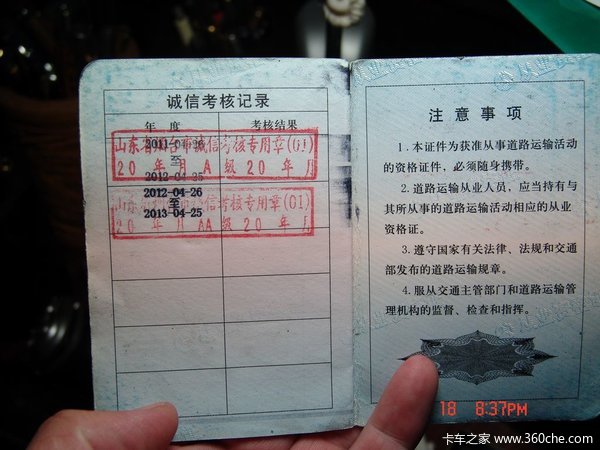 诚信考核记录
年 度
考核结果
山东省烟台市诚信考核专用章(01)
20 年 月 A 级 20 年 月
至
2012-04-25
2012-04-26
至
2013-04-25
信考核专用章(01)
20 年 月 AA 级 20 年 月
注意事项
1.本证件为获准从事道路运输活动
的资格证件，必须随身携带。
2.道路运输从业人员，应当持有与
其所从事的道路运输活动相应的从业
资格证。
3.遵守国家有关法律、法规和交通
部发布的道路运输规章。
4.服从交通主管部门和道路运输管
理机构的监督、检查和指挥。
18 8:37PM
卡车之家 www.360che.com